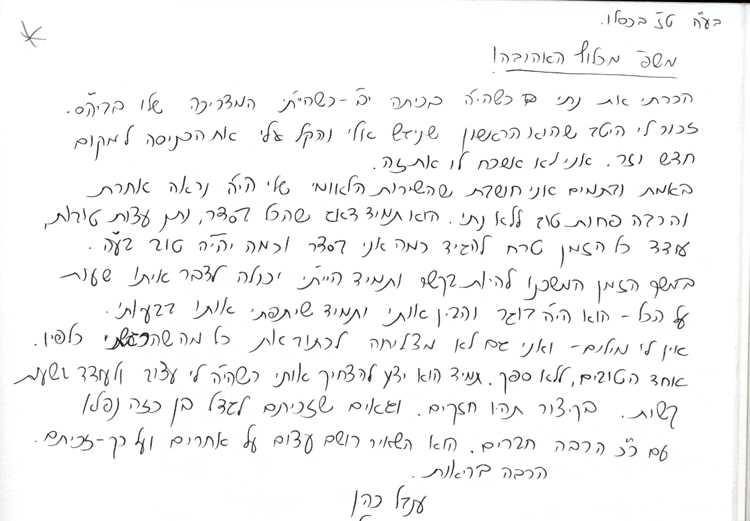 בע"ה טז בכסלו.
משפ' מכלוף האהובה!
הכרתי את נתי כשהי"ה בכיתה יב'-כשהייתי המדריכה שלו בביה"ס.
זכור לי היטב שהוא הראשון שניגש אלי והקל עלי את הכניסה למקום
חדש וזר. אני לא אשכח לו את זה.
באמת ובתמים אני חושבת שהשירות הלאומי שלי היה נראה אחרת
והרבה פחות טוב ללא נתי. הוא תמיד דאג שהכל בסדר, נתן עצות טובות,
עודד כל הזמן טרח להגיד כמה אני בסדר וכמה יהי"ה טוב בע"ה.
במשך הזמן המשכנו להיות בקשר ותמיד הייתי יכולה לדבר איתו שעות
על הכל - הוא הי"ה בוגר והבין אותי ותמיד שיתפתי אותו בבעיותי.
אין לי מילים - ואני גם לא מצליחה לכתוב את כל מה שהרגשתי כלפיו.
אוחד הטובים, ללא ספק. תמיד הוא ידע להצחיק אותי כשהי"ה לי עצוב ולעודד בשעות
קשות. בקיצור תהיו חזקים. וגאים שזכיתם לגדל בן כזה נפלא
עם כ"כ הרבה חברים. הוא השאיר רושם עצום על אחרים ועל כך-זכיתם.
הרבה בריאות.
ענבל כהן